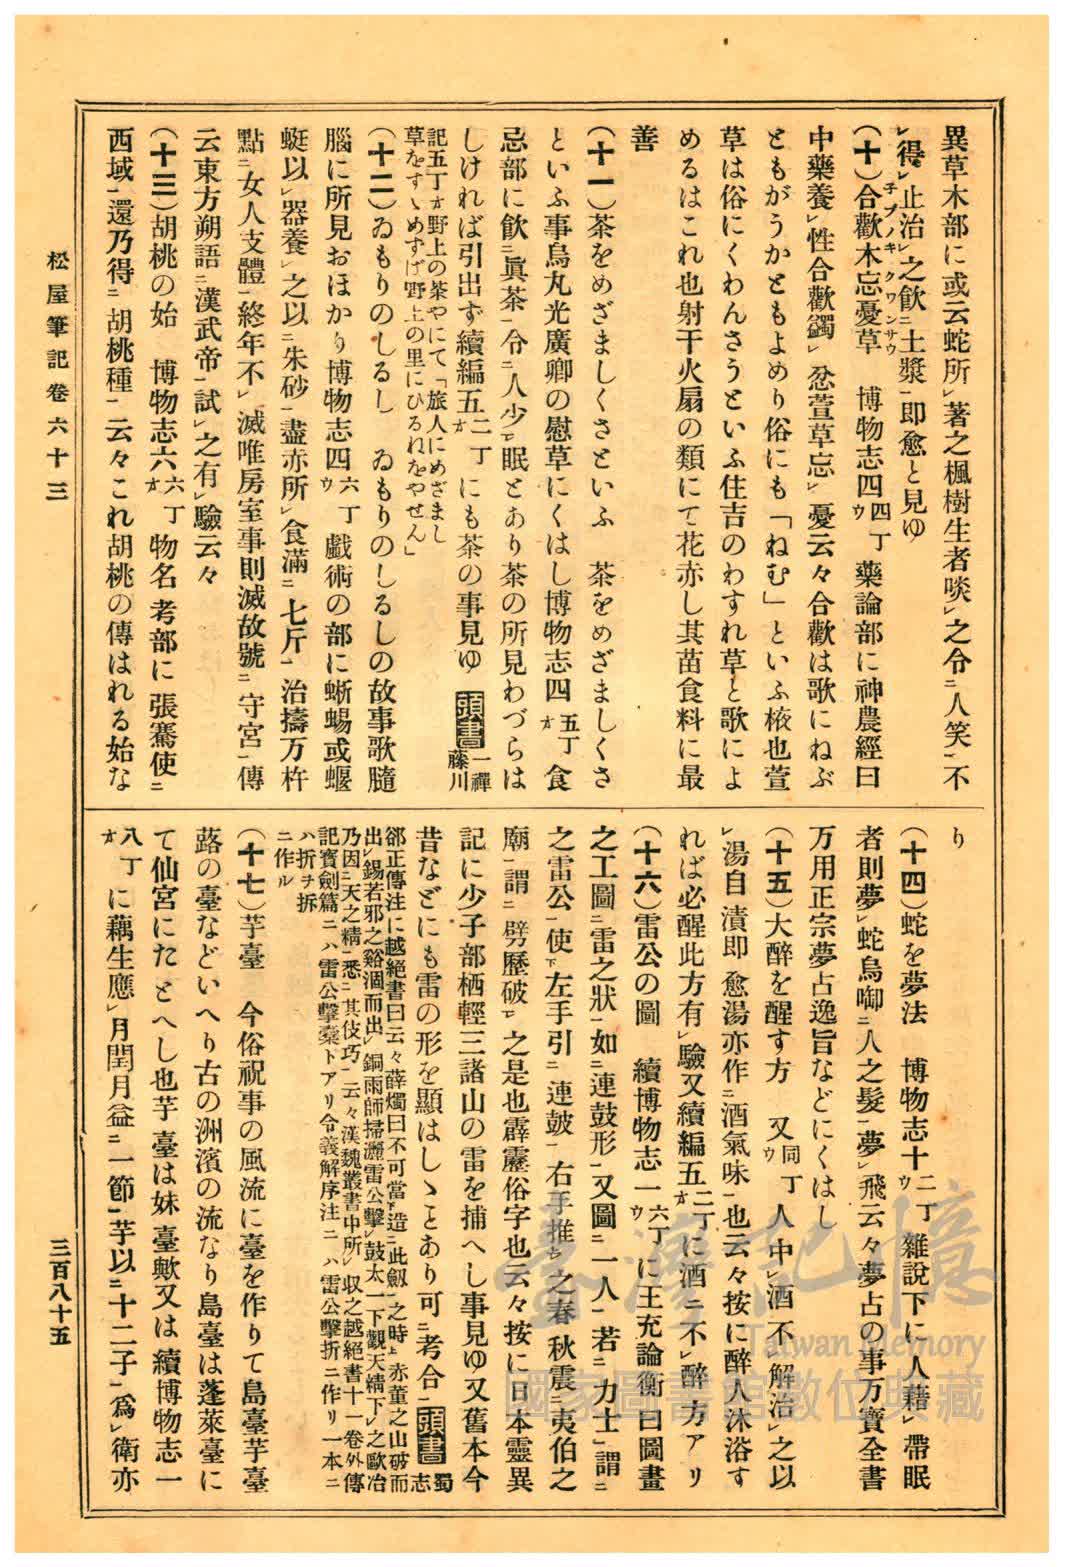 異草木部に或云蛇所㆑著之楓樹生者啖㆑之令㆓人笑㆒不
㆑得㆑止治㆑之飲㆓土漿㆒即愈と見ゆ
(十)合歡木忘憂草　博物志四四丁ウ藥論部に神農經曰
チブノキ　クワンサウ
中藥養㆑性合歡蠲㆑忿萱草忘㆑憂云々合歡は歌にねぶ
ともがうかともよめり俗にも「ねむ」といふ桉也萱
草は俗にくわんさうといふ住吉のわすれ草と歌によ
めるはこれ也射干火扇の類にて花赤し其苗食料に最
善
(十一)茶をめざましくさといふ　茶をめざましくさ
といふ事烏丸光廣卿の慰草にくはし博物志四五丁オ食
忌部に飲㆓眞茶㆒令㆓人少㆑眠とあり茶の所見わづらは
しければ引出ず續編五二丁オにも茶の事見ゆ　頭書一禪藤川
記五丁オ野上の茶やにて「旅人にめざまし
草をすゝめずば野上の里にひるねをやせん」
(十二)ゐもりのしるし　ゐもりのしるしの故事歌隨
腦に所見おほかり博物志四六丁ウ戲術の部に蜥蜴或蝘
蜓以㆑器養㆑之以㆓朱砂㆒盡赤所㆑食滿㆓七斤㆒治擣万杵
點㆓女人支體㆒終年不㆑滅唯房室事則滅故號㆓守宮㆒傳
云東方朔語㆓漢武帝㆒試㆑之有㆑驗云々
(十三)胡桃の始　博物志六六丁オ物名考部に張騫使㆓
西域㆒還乃得㆓胡桃種㆒云々これ胡桃の傳はれる始な
り
(十四)蛇を夢法　博物志十二丁ウ雜說下に人藉㆑帶眠
者則夢㆑蛇烏啣㆓人之髮㆒夢㆑飛云々夢占の事万寶全書
万用正宗夢占逸旨などにくはし
(十五)大醉を醒す方　又同丁ウ人中㆑酒不㆑解治㆑之以
㆑湯自漬即愈湯亦作㆓酒氣味㆒也云々按に醉人沐浴す
れば必醒此方有㆑驗又續編五二丁オに酒ニ不㆑醉方アリ
(十六)雷公の圖　續博物志一六丁ウに王充論衡曰圖畫
之工圖㆓雷之狀㆒如㆓連鼓形㆒又圖㆓一人㆒若㆓力士㆒謂㆓
之雷公㆒使㆘左手引㆓連鼓㆒右手推㆖之春秋震㆓夷伯之
廟㆒謂㆓劈歷破㆒之是也霹靂俗字也云々按に日本靈異
記に少子部栖輕三諸山の雷を捕へし事見ゆ又舊本今
昔などにも雷の形を顯はしゝとあり可㆓考合㆒頭書蜀志
郤正傳注に越絕書曰云々薛燭曰不可當造㆓此劔㆒之時㆖赤菫之山破而
出㆑錫若邪之谿涸而出㆑銅雨師掃灑雷公擊㆑鼓太一下觀天精下㆑之歐冶
乃因㆓天之精㆒悉㆓其伎巧㆒云々漢魏叢書中所㆑収之越絕書十一卷外傳
記寶劍篇ニハ雷公擊橐トアリ令義解序注ニハ雷公擊折ニ作リ一本ニ
ハ折ヲ拆
ニ作ル
(十七)芋臺　今俗祝事の風流に臺を作りて島臺芋臺
蕗の臺などいへり古の洲濱の流なり島臺は蓬萊臺に
て仙宮にたとへし也芋臺は妹臺歟又は續博物志一
八丁オに藕生應㆑月閏月益㆓一節㆒芋以㆓十二子㆒爲㆑衛亦
松屋筆記卷六十三
三百八十五
臺灣記憶
Taiwan Memory
國家圖書館數位典藏